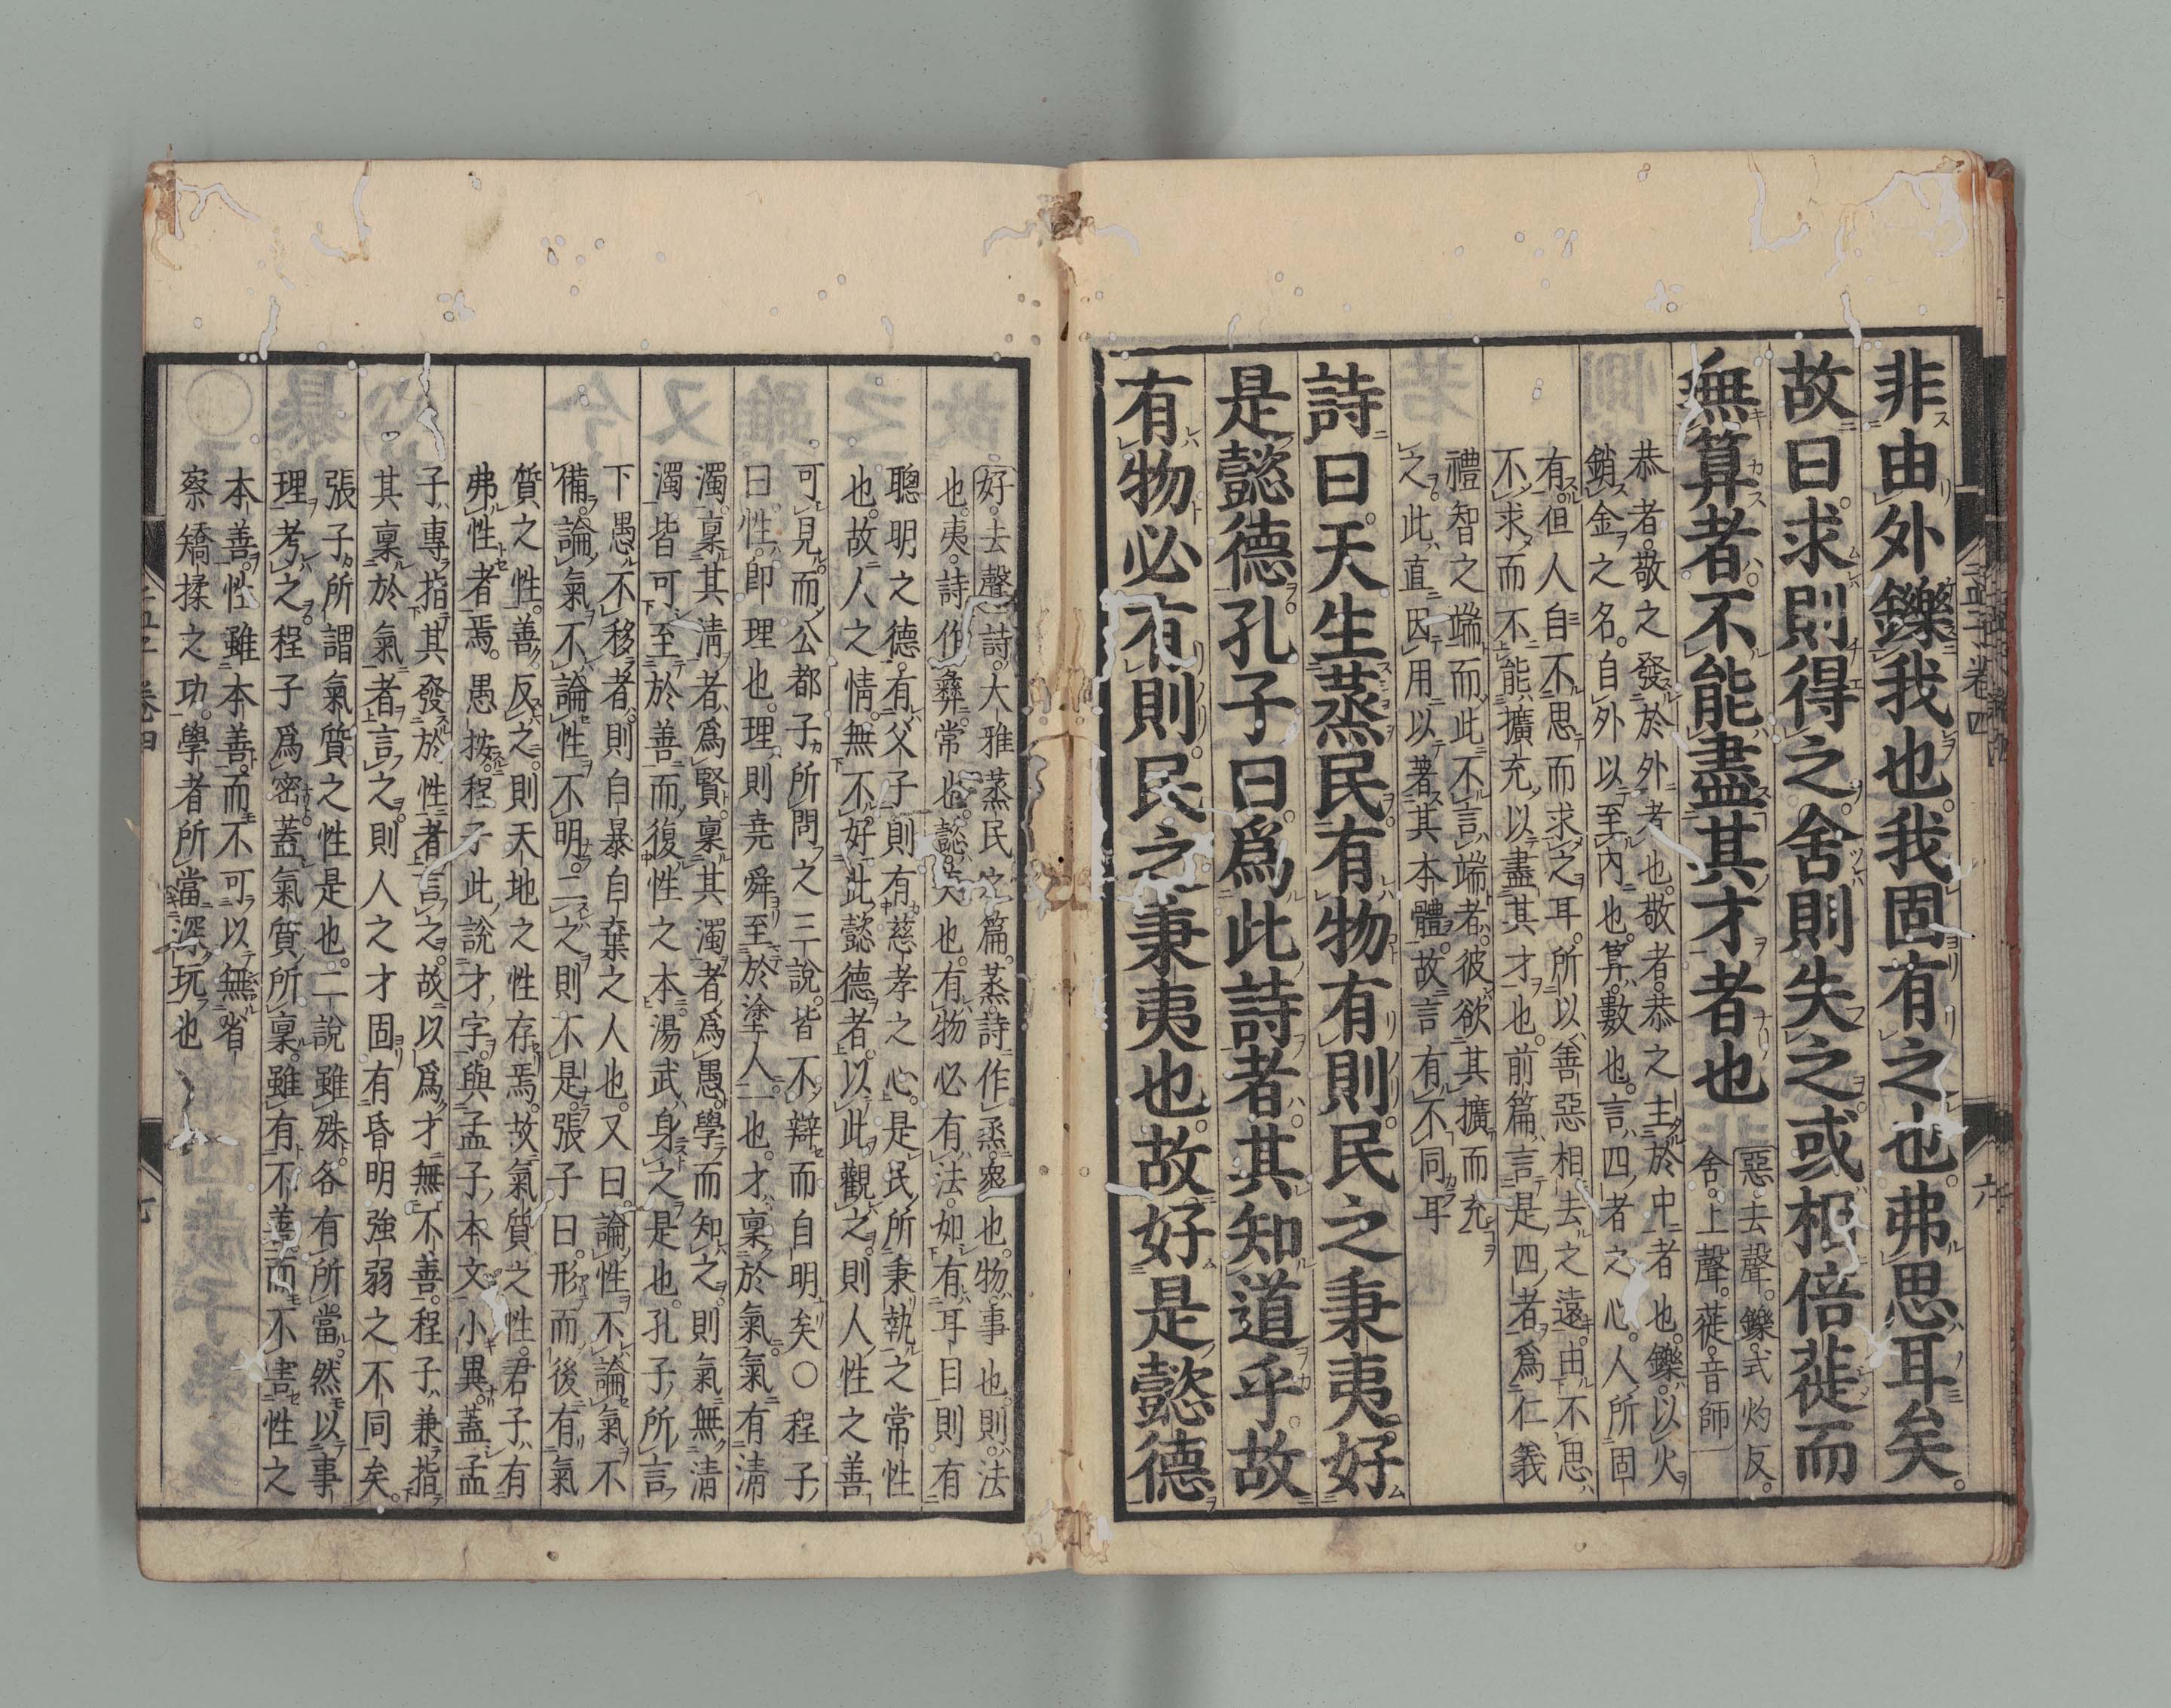 非由外鑠我也我固有之也弗思耳矣
故曰求則得之舍則失之或相倍蓰而
無算者不能盡其才者也
惡去聲鑠式灼反
舍上聲蓰音師
恭者敬之發於外者也敬者恭之主於中者也鑠以火
銷金之名自外以至內也算數也言四者之心人所固
有但人自不思而求之耳所以善惡相去之遠由不思
不求而不能擴充以盡其才也前篇言是四者爲仁義
禮智之端而此不言端者彼欲其擴而充
之此直因用以著其本體故言有不同耳
詩曰天生蒸民有物有則民之秉夷好
是懿德孔子曰爲此詩者其知道乎故
有物必有則民之秉夷也故好是懿德
好去聲詩大雅蒸民之篇蒸詩作烝衆也物事也則法
也夷詩作彝常也懿美也有物必有法如有耳目則有
聰明之德有父子則有慈孝之心是民所秉執之常性
也故人之情無不好此懿德者以此觀之則人性之善
可見而公都子所問之三說皆不辯而自明矣○程子
曰性卽理也理則堯舜至於塗人一也才稟於氣氣有淸
濁稟其淸者爲賢稟其濁者爲愚學而知之則氣無淸
濁皆可至於善而復性之本湯武身之是也孔子所言
下愚不移者則自暴自棄之人也又曰論性不論氣不
備論氣不論性不明二之則不是張子曰形而後有氣
質之性善反之則天地之性存焉故氣質之性君子有
弗性者焉愚按程子此說才字與孟子本文小異蓋孟
子專指其發於性者言之故以爲才無不善程子兼指
其稟於氣者言之則人之才固有昏明強弱之不同矣
張子所謂氣質之性是也二說雖殊各有所當然以事
理考之程子爲密蓋氣質所稟雖有不善而不害性之
本善性雖本善而不可以無省
察矯揉之功學者所當深玩也